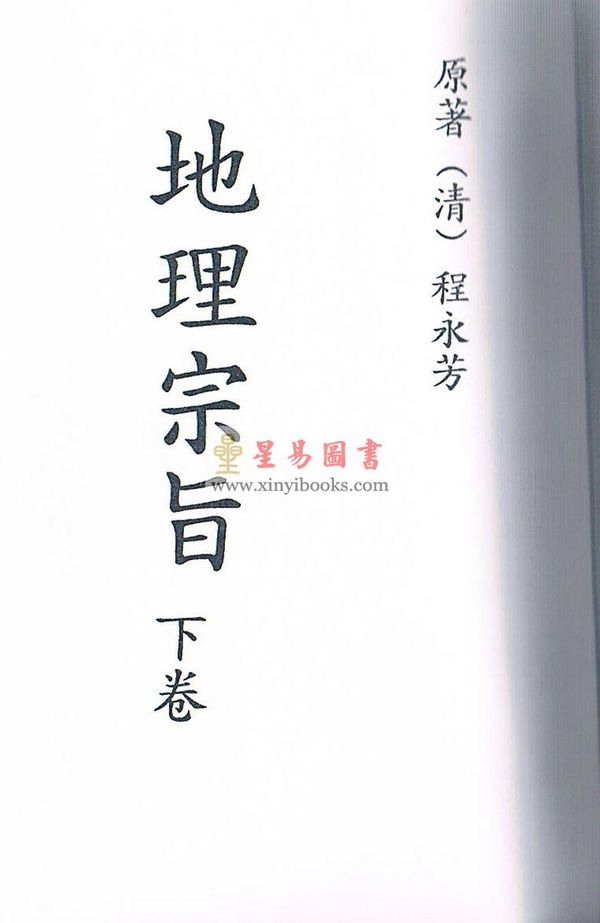 原著（清）程永芳
地理宗旨 下卷
星易圖書
www.xinyibooks.com